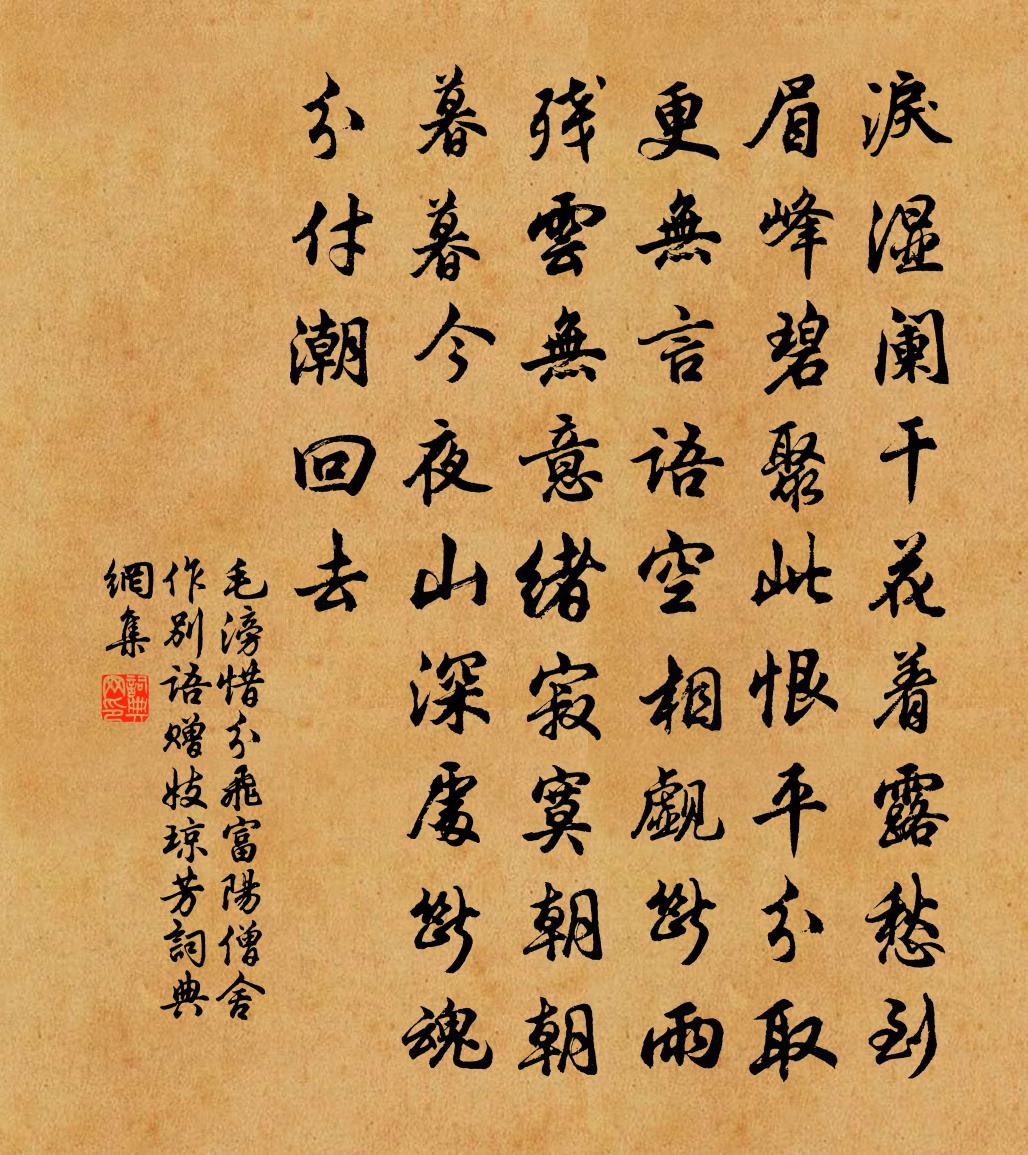 淚湿阑干花着露愁到
眉峰碧聚此恨平分取
更無言語空相覷斷雨
残雲無意緒寂寞朝朝
暮暮今夜山深處斷魂
分付潮回去
毛滂惜分飛富陽僧舍
作别語赠妓琼芳詞典
網集
詞典
网印